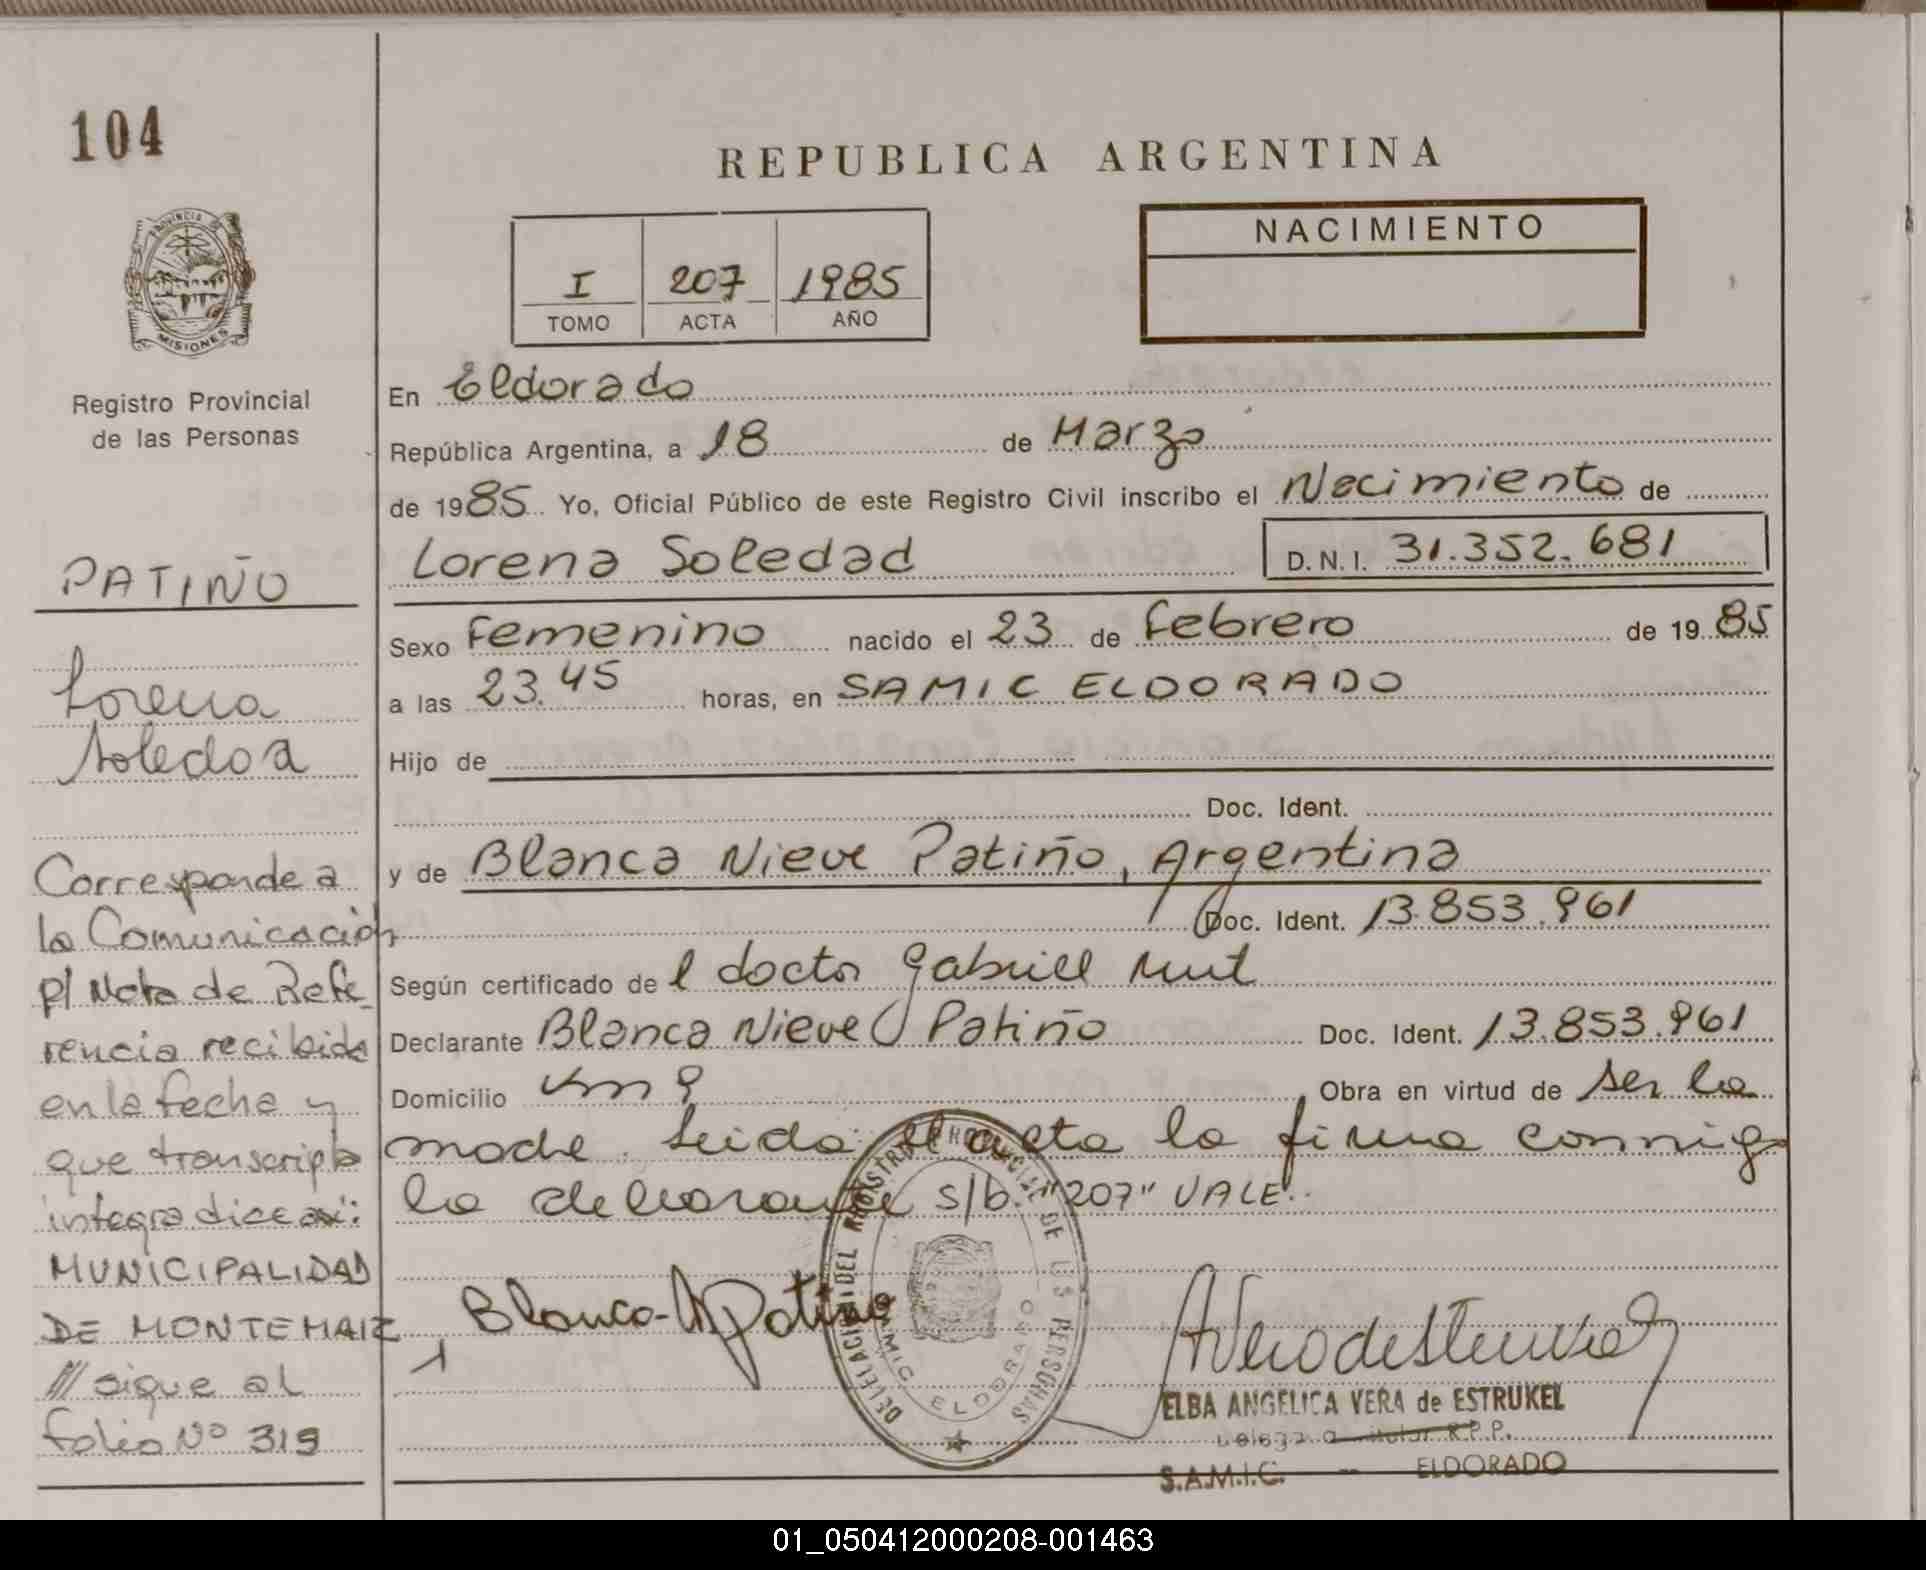 104
REPUBLICA ARGENTINA
PROVINCIA DE
MISIONES
Registro Provincial
de las Personas
PATIÑO
Lorena
Soledad
Corresponde a
la Comunicación
p/ Nota de Refe-
rencia recibida
en la fecha y
que transcripta
integra dice así:
MUNICIPALIDAD
DE MONTEMAIZ
/// sigue al
folio Nº 319
I 207 1985
TOMO ACTA AÑO
NACIMIENTO
En Eldorado
República Argentina, a 18 de Marzo
de 1985 Yo, Oficial Público de este Registro Civil inscribo el Nacimiento de
Lorena Soledad D.N.I. 31.352.681
Sexo Femenino nacido el 23 de Febrero de 1985
a las 23.45 horas, en SAMIC ELDORADO
Hijo de
Doc. Ident.
y de Blanca Nieve Patiño, Argentina
Doc. Ident. 13.853.961
Según certificado de l doctor Gabriel
Declarante Blanca Nieve Patiño Doc. Ident. 13.853.961
Domicilio Km 9 Obra en virtud de ser la
madre. Leida el acta la firma conmigo
la declarante s/b. "207" VALE.
Blanca N Patiño
DELEGACION DEL REGISTRO PROVINCIAL DE LAS PERSONAS
SAMIC ELDORADO
ELBA ANGELICA VERA de ESTRUKEL
Delegada Titular R.P.P.
S.A.M.I.C. - ELDORADO
01_050412000208-001463